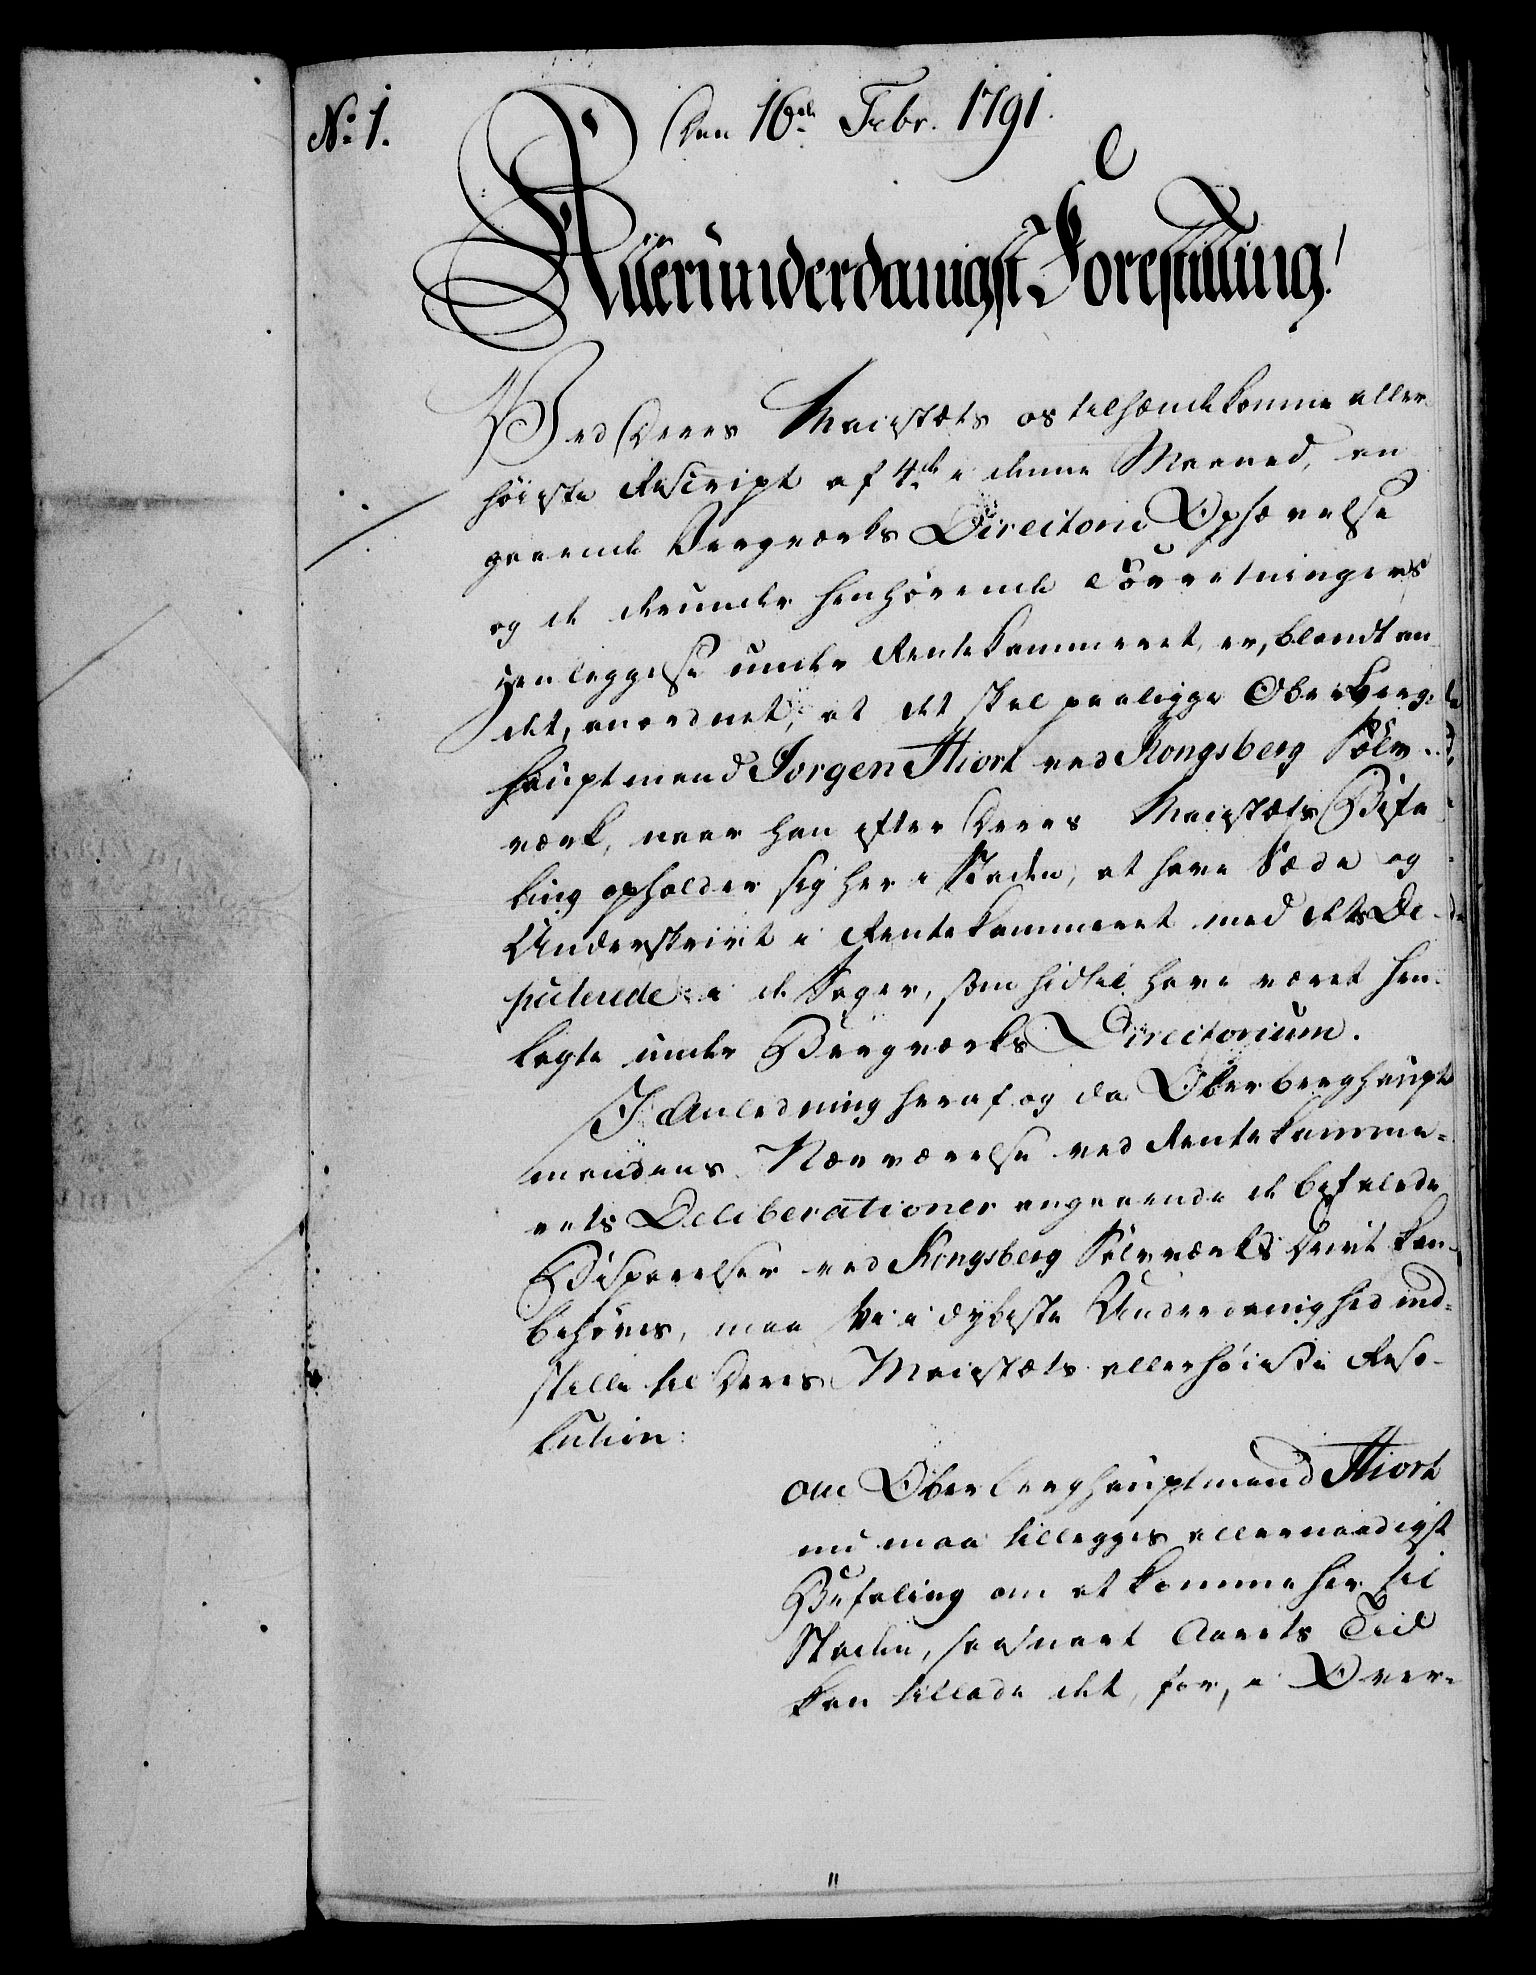 No 1.
Den 16de Febr. 1791.
Allerunderdanigst Forestilling!
Ved Deres Majestæts os tilhændekomne aller-
høieste Rescript af 4de i denne Maaned, an-
gaaende Bergværks Directorii Ophævelse
og de derunder henhørende Forretningers
Henleggelse under Rentekammeret, er, blandt an-
det, anordnet, at det skal paaligge Oberberg-
hauptmand Jørgen Hiort ved Kongsberg Sølv-
værk, naar han efter Deres Majestæts Befa-
ling opholder sig her i Staden, at have Sæde og
Underskrivt i Rentekammeret med dets De-
puterede i de Sager, som hidtil have været hen-
lagte under Bergværks Directorium.
I Anledning heraf og da Oberberghaupt-
mandens Nærværelse ved Rentekamme-
rets Deliberationer angaaende de befalede
Besparelser ved Kongsberg Sølvværks Drivt kan
behøves, maa Vi i dybeste Underdanighed ind-
stille til Deres Majestæts allerhøieste Reso-
lution:
Om Oberberghauptmand Hiort
nu maa tillegges allernaadigst
Befaling om at komme her til
Staden, saasnart Aarets Tid
kan tillade det, for, i Over-
11